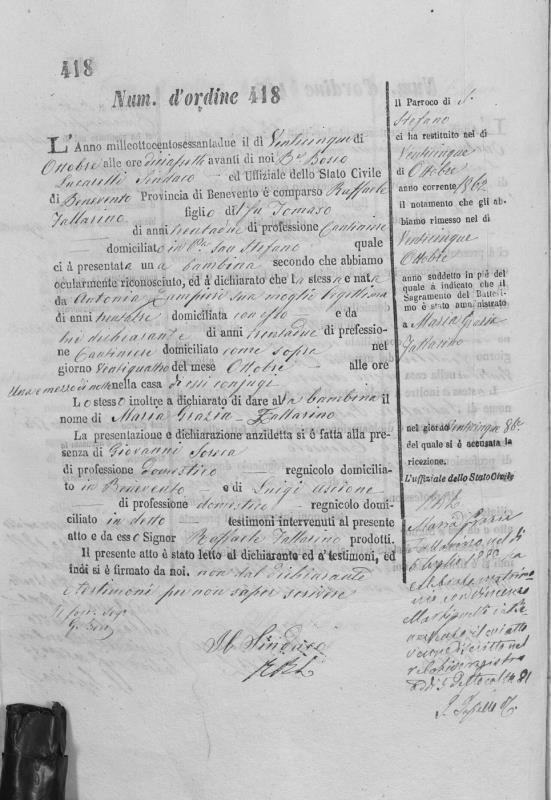 418
Num. d'ordine 418
L'Anno milleottocentosessantadue il dì Venticinque di
Ottobre alle ore diciasette avanti di noi Bne Bosco
Lucarelli Sindaco ed Uffiziale dello Stato Civile
di Benevento Provincia di Benevento è comparso Raffaele
Tallarino figlio di fu Tomaso
di anni trentadue di professione Cantiniere
domiciliato in San Stefano quale
ci à presentata una bambina secondo che abbiamo
ocularmente riconosciuto, ed à dichiarato che La stessa e nata
da Antonia sua moglie legittima
di anni trentatre domiciliata con esso e da
lui dichiarante di anni trentadue di professio-
ne Cantiniere domiciliato come sopra nel
giorno Ventiquattro del mese Ottobre alle ore
Una e mezzo di notte nella casa di essi conjugi
Lo stesso inoltre a dichiarato di dare alla bambina il
nome di Maria Grazia Tallarino
La presentazione e dichiarazione anzidetta si è fatta alla pre-
senza di Giovanni
di professione domestico regnicolo domicilia-
to in Benevento e di Luigi
di professione domestico regnicolo domi-
ciliato in detto testimoni intervenuti al presente
atto e da esso Signor Raffaele Tallarino prodotti.
Il presente atto è stato letto al dichiarante ed a' testimoni, ed
indi si è firmato da noi, non dal dichiarante
e testimoni per non saper scrivere
Il Sindaco
Il Parroco di S.
Stefano
ci ha restituito nel dì
Venticinque
di Ottobre
anno corrente 1862
il notamento che gli ab-
biamo rimesso nel dì
Venticinque
Ottobre
anno suddetto in piè del
quale à indicato che il
Sagramento del Battesi-
mo è stato amministrato
a Maria Grazia
Tallarino
nel giorno Venticinque 8bre
del quale si è accusata la
ricezione.
L'uffiziale dello Stato Civile
Maria Grazia
Tallarino nel dì
Luglio 1880 ha
matrimo-
nio con Vincenzo
il cui atto
nel
registro